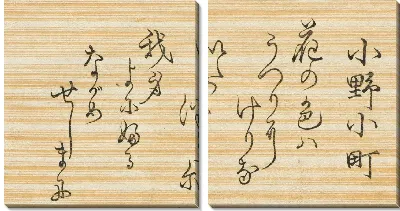 小野小町
花の色ハ
うつりに
けりな
我身
よに婦る
ながめ
せしまに